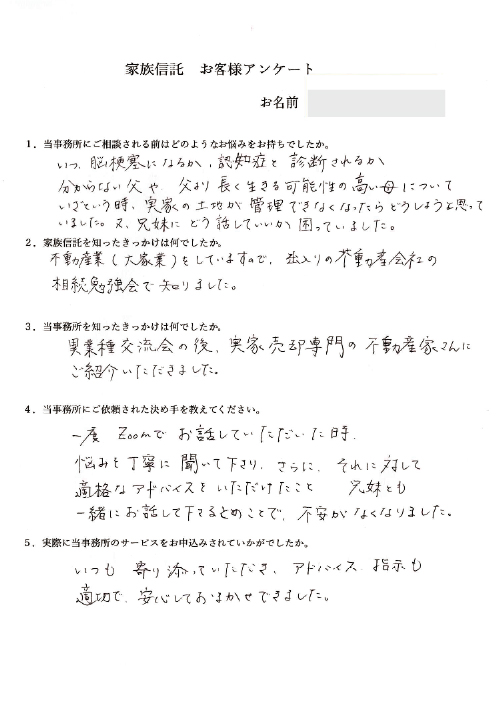 家族信託 お客様アンケート
お名前
1．当事務所にご相談される前はどのようなお悩みをお持ちでしたか。
いつ、脳梗塞になるか、認知症と診断されるか
分からない父や、父より長く生きる可能性の高い母について
いざという時、実家の土地が管理できなくなったらどうしようと思って
いました。又、兄妹にどう話していいか困っていました。
2．家族信託を知ったきっかけは何でしたか。
不動産業(大家業)をしていますので、出入りの不動産会社の
相続勉強会で知りました。
3．当事務所を知ったきっかけは何でしたか。
異業種交流会の後、実家売却専門の不動産家さんに
ご紹介いただきました。
4．当事務所にご依頼された決め手を教えてください。
一度 Zoomで お話していただいた時、
悩みを丁寧に聞いて下さり、さらに、それに対して
適格なアドバイスをいただけたこと 兄妹とも
一緒にお話して下さるとのことで、不安がなくなりました。
5．実際に当事務所のサービスをお申込みされていかがでしたか。
いつも寄り添っていただき、アドバイス、指示も
適切で、安心しておまかせできました。